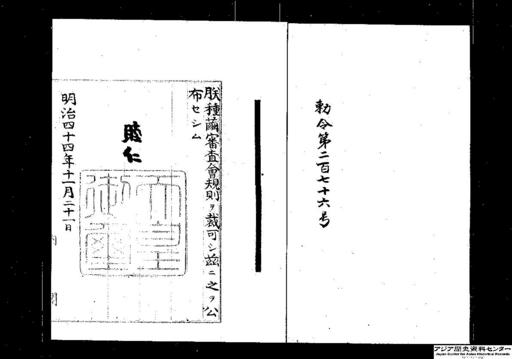 勅令第二百七十六号
朕種繭審査會規則ヲ裁可シ茲ニ之ヲ公
布セシム
睦仁
天皇御璽
明治四十四年十一月二十一日
内閣
アジア歴史資料センター
Japan Center for Asian Historical Records